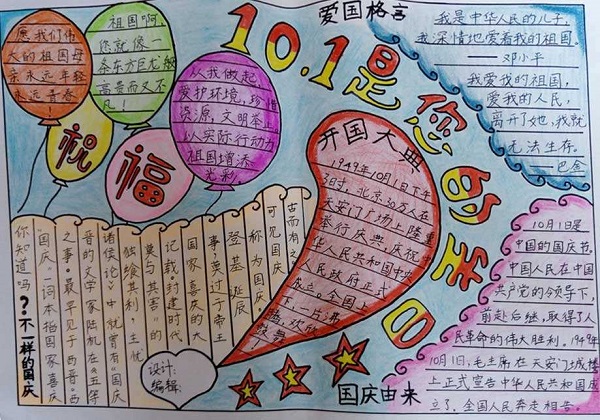 愿我们伟
大的祖国母
亲永远年轻
永远青春
!
祖国啊
你就像一
条东方巨龙般
高贵而又不
凡!
祝
福
从我做起,
爱护环境,珍惜
资源,文明举止
以实际行动为
祖国增添
光彩。
10.1是您的生日
爱国格言
我是中华人民的儿子,
我深情地爱着我的祖国。
——邓小平
我爱我的祖国,
爱我的人民,
离开了她,我就
无法生存。
——巴金
开国大典
1949年10月1日下午
3时,北京30万人在
天安门广场上隆重
举行庆典,庆祝中
华人民共和国中央
人民政府正式
成立。全国上
下,一片
腾,欢欣
鼓舞
你知道吗?不一样的国庆
"国庆"一词本指国家喜庆
之事,最早见于西晋。西
晋的文学家陆机在《五等
诸侯论》中就曾有"国庆
独飨其利,主忧
莫与其害"的
记载,封建时代
国家喜庆的大
事,莫过于帝王
登基诞辰
称为国庆。
可见国庆
古而有之
设计:
编辑:
国庆由来
10月1日是
中国的国庆节。
中国人民在中国
共产党的领导下,
前赴后继,取得了人
民革命的伟大胜利。1949年
10月1日,毛主席在天安门城楼
上正式宣告中华人民共和国成
立了,全国人民奔走相告。